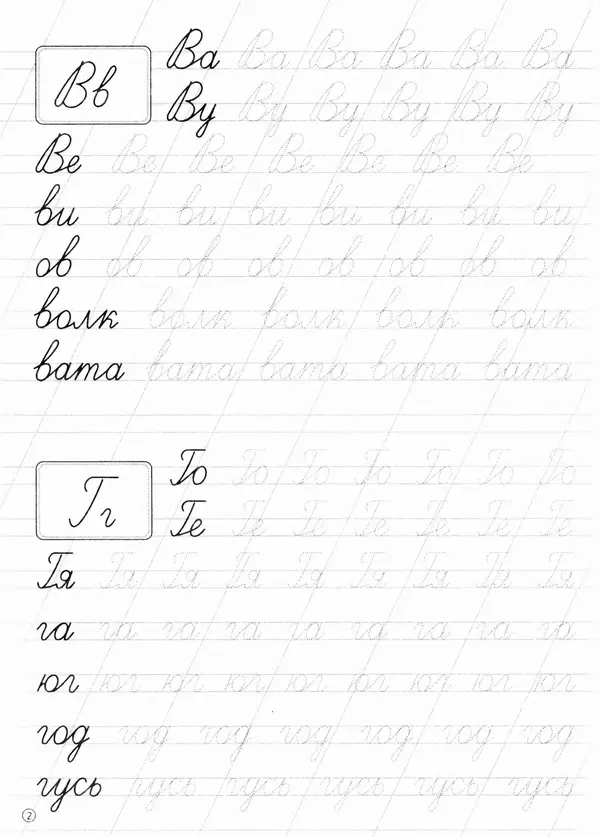 Вв
Ва Ва Ва Ва Ва Ва
Ву Ву Ву Ву Ву Ву
Ве Ве Ве Ве Ве Ве Ве
ви ви ви ви ви ви ви ви
ов ов ов ов ов ов ов ов
волк волк волк волк волк
вата вата вата вата вата
Гг
Го Го Го Го Го Го Го
Ге Ге Ге Ге Ге Ге Ге
Гя Гя Гя Гя Гя Гя Гя Гя Гя
га га га га га га га га га
юг юг юг юг юг юг юг юг юг
год год год год год год год
гусь гусь гусь гусь гусь гусь
2